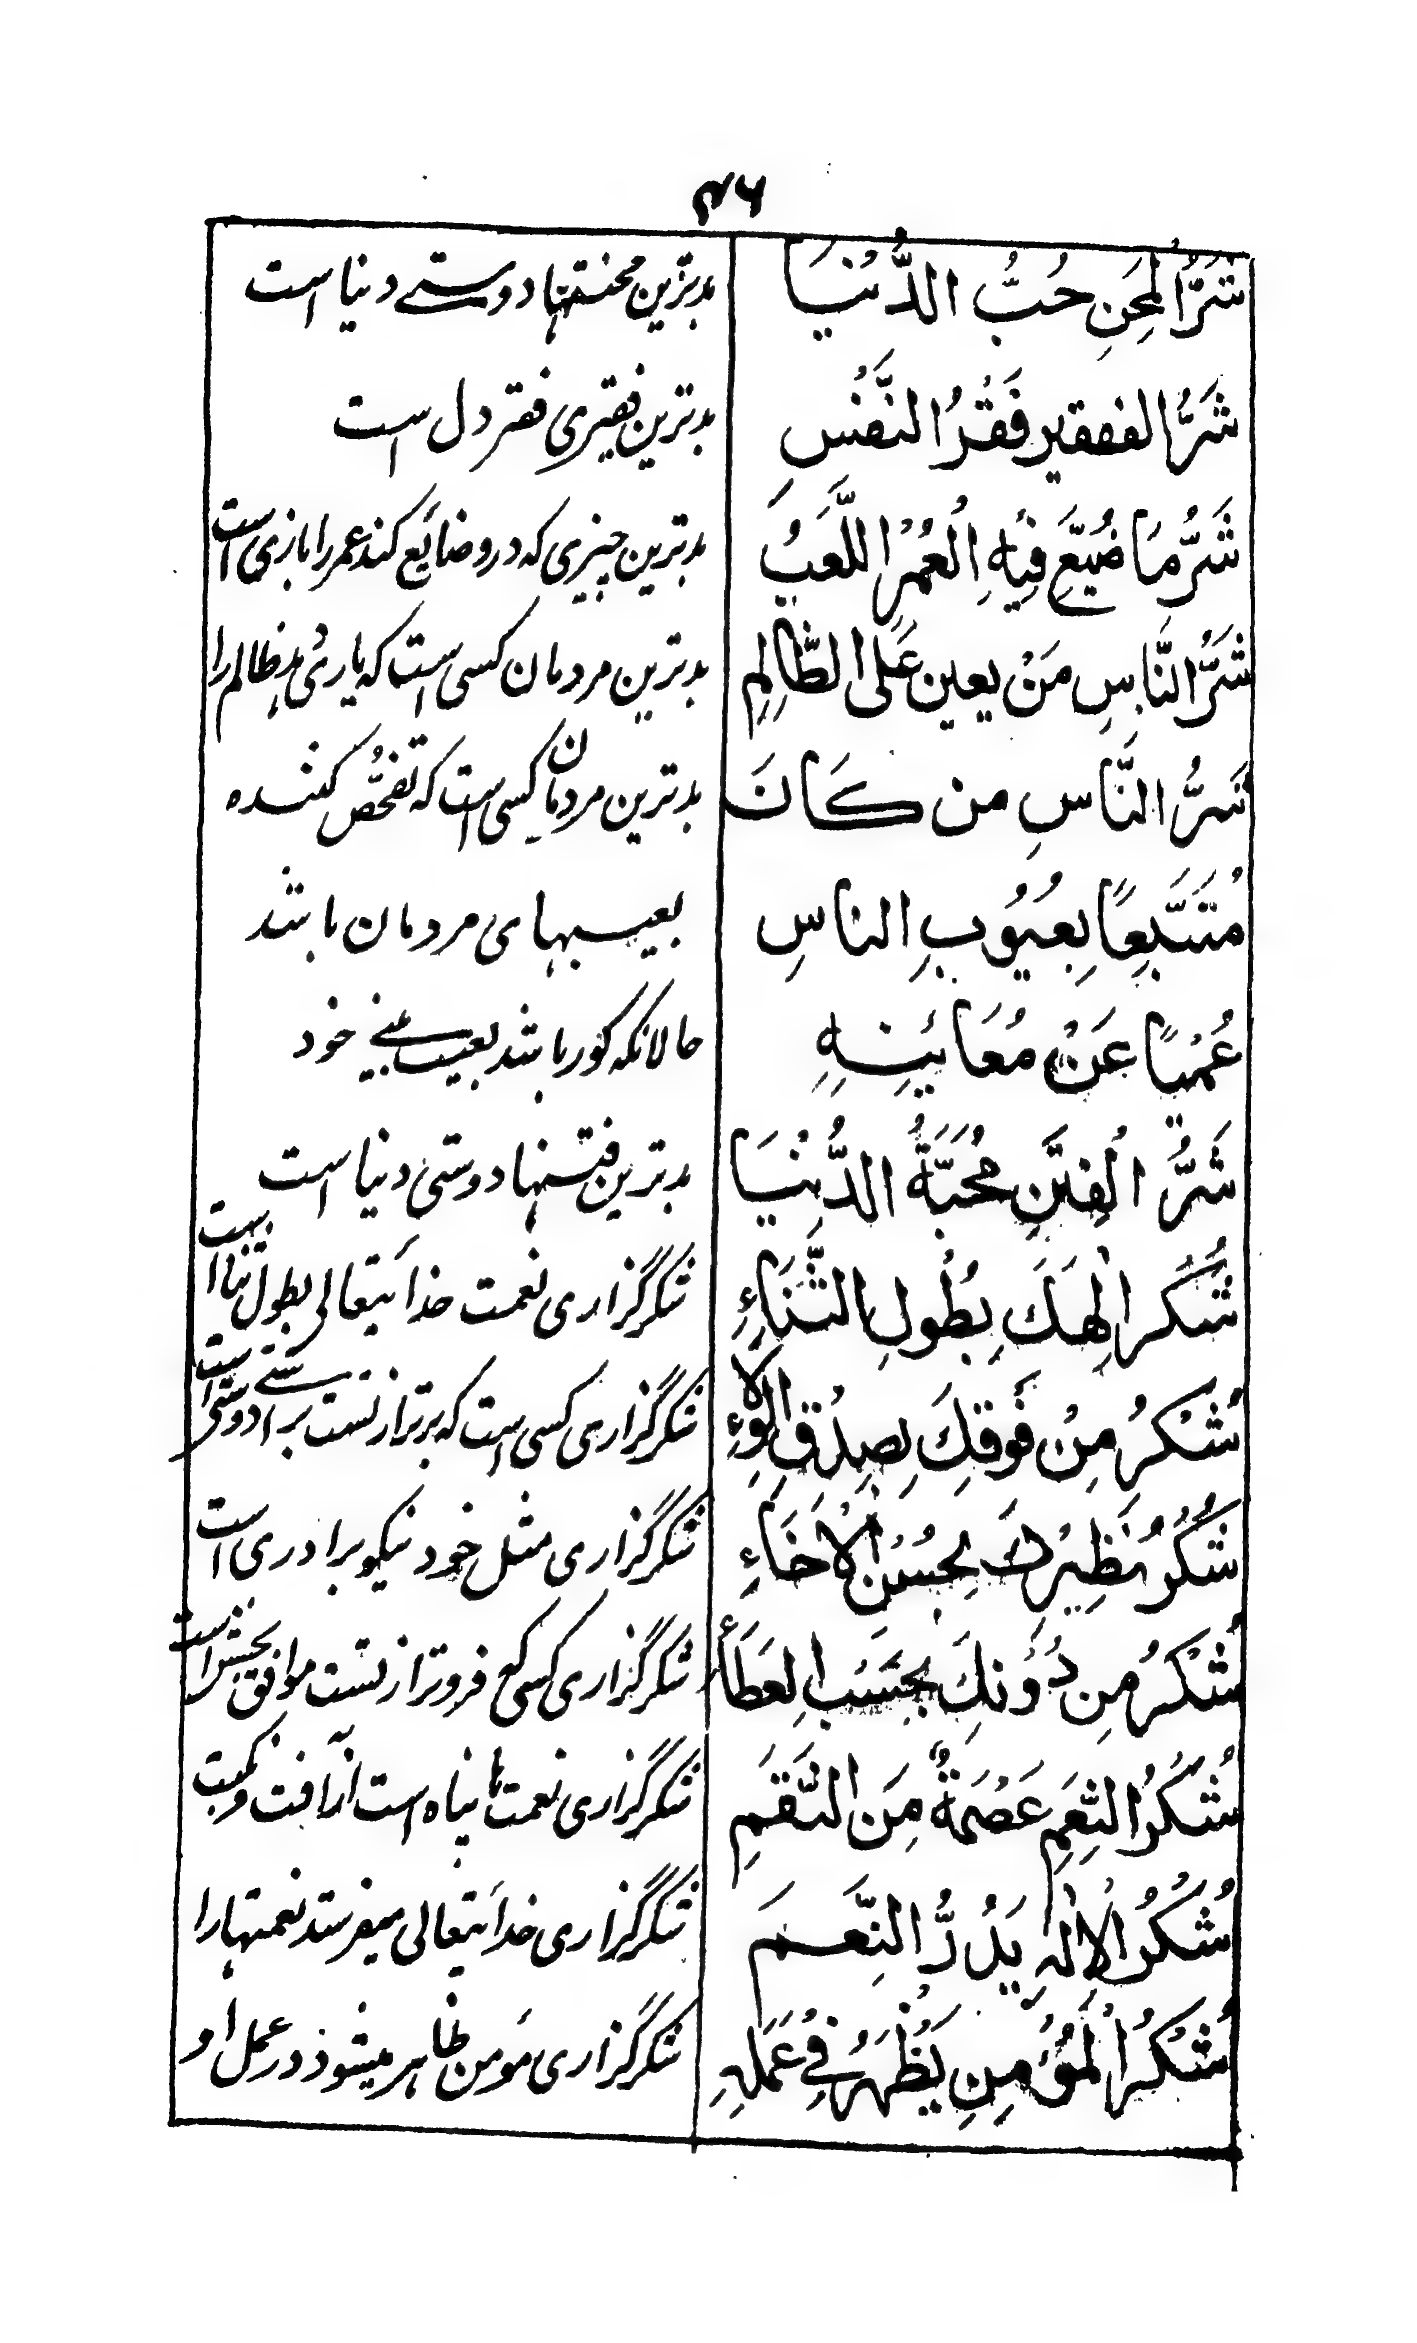 ۴۶
شَرُّ الْمِحَنِ حُبُّ الدُّنْيَا
بدترین محنتها دوستے دنیا است
شَرُّ الفقير فَقْرُ النَّفْسِ
بدترین فقیری فقر دل است
شَرُّ مَا ضُيِّعَ فِيْهِ الْعُمْرُ اللَّعَبُ
بدترین چیزی که درو ضایع کند عمر را بازی است
شَرُّ النَّاسِ مَنْ يعين عَلَى الظَّالِمِ
بدترین مردمان کسی است که یاری دهد ظالم را
شَرُّ النَّاسِ من كَانَ
بدترین مردمان کسی است که تفحّص کننده
مُتَتَبِّعًا بِعُيُوْبِ الناسِ
بعیبهای مردمان باشد
عُمْيًا عَنْ مُعَائِنِهِ
حالانکه کور باشد بعیب بینے خود
شَرُّ الْفِتَنِ مُحَبَّةُ الدُّنْيَا
بدترین فتنها دوستی دنیا است
شُكر اِلٰهَكَ بِطُولِ الثَّنَاءِ
شکرگزاری نعمت خدایتعالی بطول ثنا است
شُكْرُ مِنْ فَوقِكَ بِصِدْقِ الْوِلَاءِ
شکرگزاری کسی است که برتر از تست براستے دوستی است
شُكْرُ نَظِيْرِكَ بِحُسْنِ الْاِخَاءِ
شکرگزاری مثل خود نیکو برادری است
شُكْرُ مِن دُوْنِكَ بِحَسَبِ الْعَطَاءِ
شکرگزاری کسی کہ فروتر از تست موافق بخشش است
شُكْرُ النِّعَمِ عَصْمَةٌ مِنَ النَّقَمِ
شکرگزاری نعمت ها پناه است از آفت و نکبت
شُكْرُ الْاِلٰهِ يَدُرُّ النِّعَمَ
شکرگزاری خدایتعالی میفرستد نعمتها را
شُكْرُ الْمُؤْمِنِ يَظْهَرُ فِيْ عَمَلِهِ
شکرگزاری مومن ظاهر میشود در عمل او